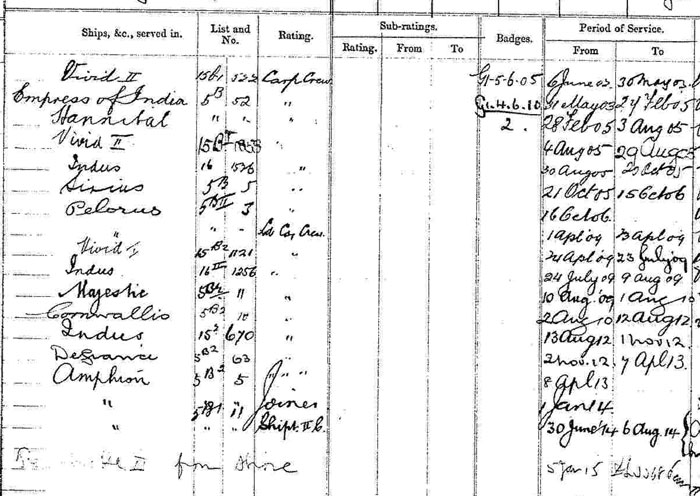 Ships, &c., served in. List and No. Rating. Sub-ratings. Badges. Period of Service.
Rating. From To From To
Vivid II 15B1 Carp Crew G1-5.6.05 6 June 03 30 May 03
Empress of India 5B 52 " G1.4.6.10 31 May 03 24 Feb 05
Hannibal " " " 2. 28 Feb 05 3 Aug 05
Vivid II " 4 Aug 05 29 Aug 05
Indus 16 1536 " 30 Aug 05 20 Oct 05
Sirius 5B 5 " 21 Oct 05 15 Oct 06
Pelorus 5BII 3 " 16 Oct 06
" " " Ldg Car Crew. 1 Apl 09 23 Apl 09
Vivid I 15B2 1121 " 24 Apl 09 23 July 09
Indus 16II 1256 " 24 July 09 9 Aug 09
Majestic 5B2 11 " 10 Aug 09 1 Aug 10
Cornwallis 5B2 10 " 2 Aug 10 12 Aug 12
Indus 15² 670 " 13 Aug 12 1 Nov 12
Defiance 5B2 63 " 2 Nov. 12. 7 Apl 13.
Amphion 5B2 5 " " " 8 Apl 13
" 5B1 11 Joiner 1 Jan 14.
" " Shipt. II C. 30 June 14 6 Aug 14
II from shore 5 Jan 15